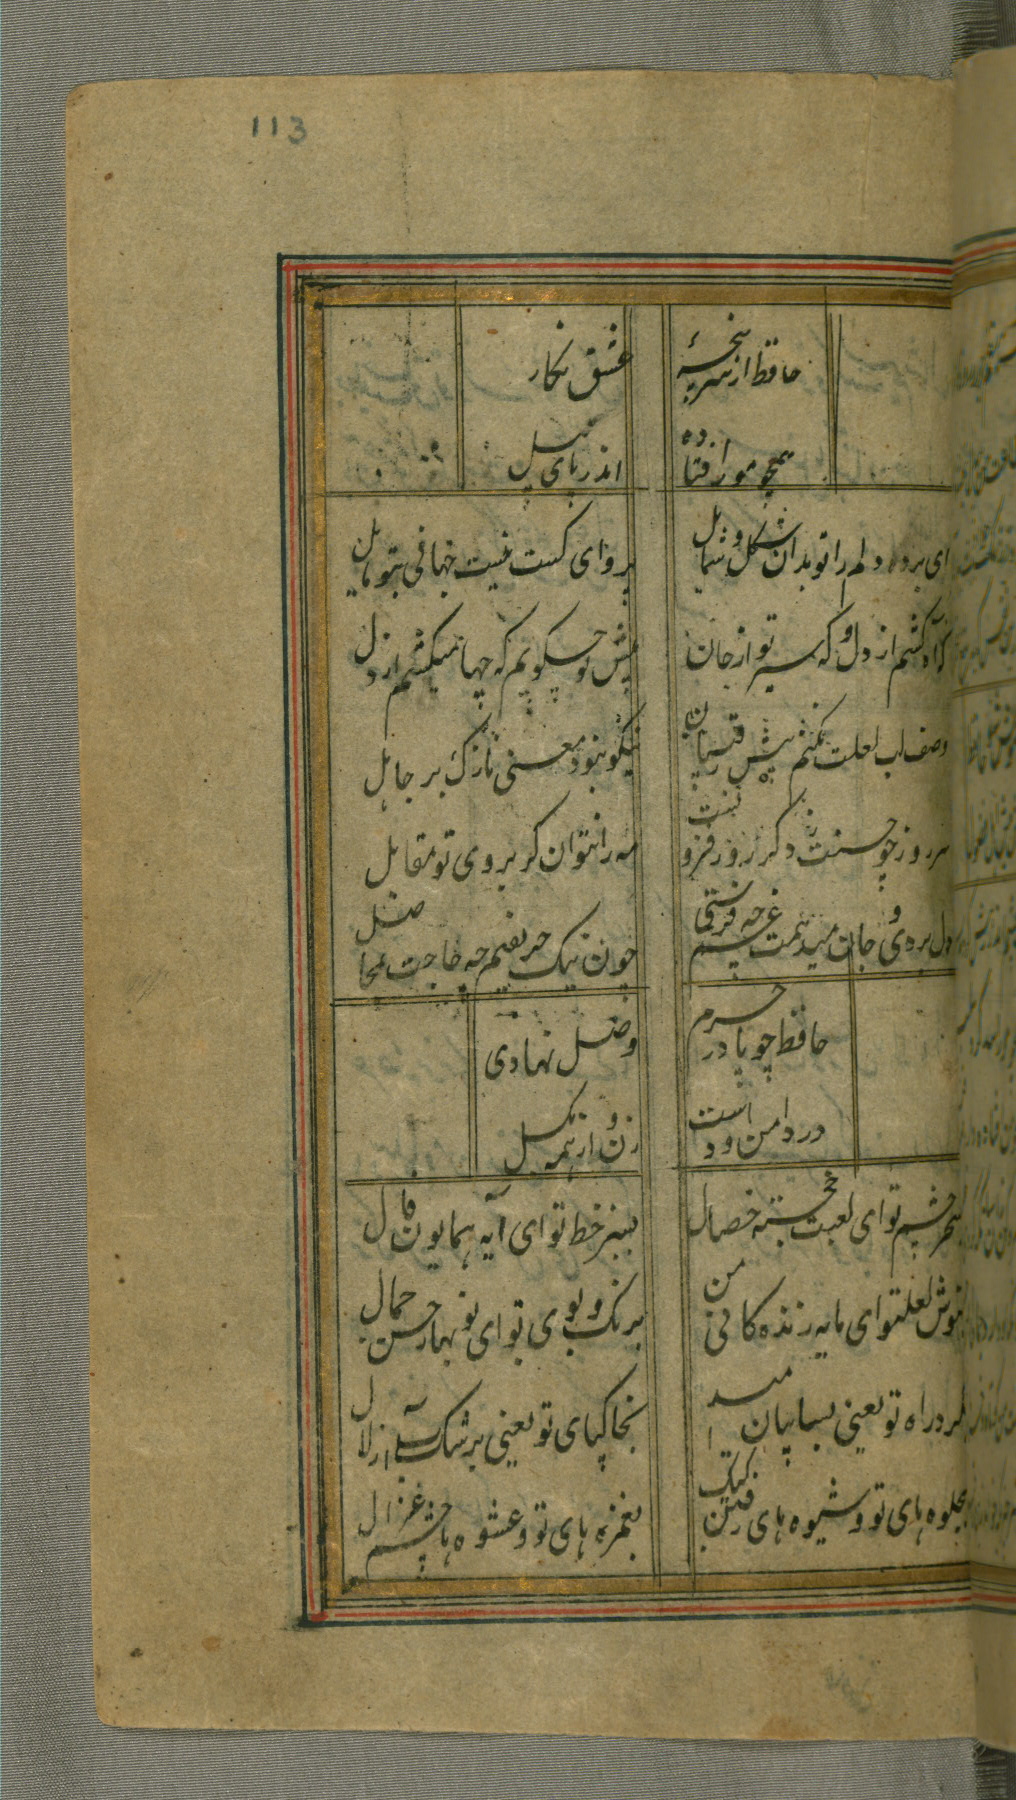 113
حافظ از سرپنجهٔ عشق نگار
همچو مور افتاده اندر پای پیل
ای برده دلم را تو بدان شکل و شمایل پروای کست نیست جهانی بتو مایل
که آه کشم از دل و که تیر تو از جان پیش تو چگویم که چها میکشم از دل
وصف لب لعلت نکنم پیش رقیبان نیکو نبود معنی نازک بر جاهل
هر روز چو حسنت دگر از روز فزونست مه را نتوان کرد بروی تو مقابل
دل بردی و جان میدهمت غم چه فرستی چون نیک حریفیم چه حاجت بمحاصل
حافظ چو پا در حرم وصل نهادی
در دامن او دست زن و از همه بگسل
بسحر چشم تو ای لعبت خجسته خصال بسبز خط تو ای آیه همایون فال
بنوش لعل تو ای مایه زنده کانی من برنک و بوی تو ای نوبهار حسن جمال
بگرد راه تو یعنی بسایبان امید بخاکپای تو یعنی برشک آب زلال
بجلوه های تو و شیوه های رفتن کبک بغمزه های تو و عشوه ها چشم غزال